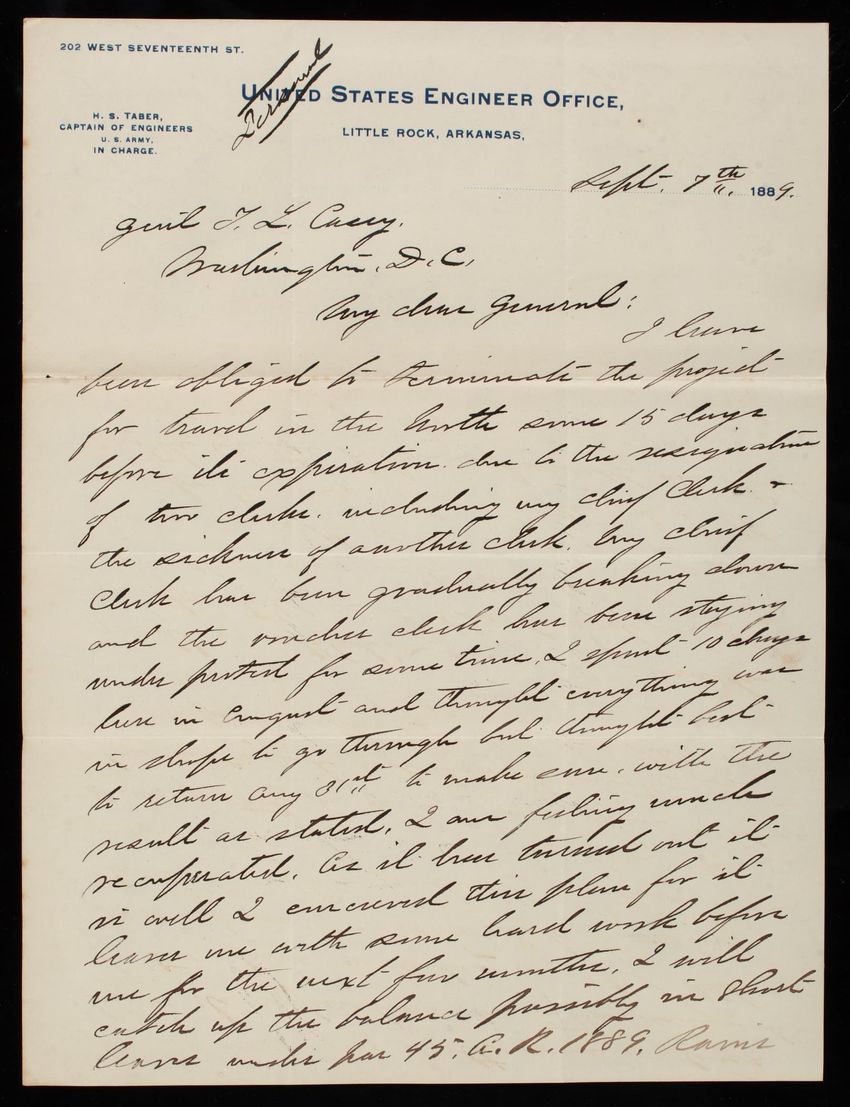 202 WEST SEVENTEENTH ST.
Personal
UNITED STATES ENGINEER OFFICE,
H. S. TABER,
CAPTAIN OF ENGINEERS
U. S. ARMY,
IN CHARGE.
LITTLE ROCK, ARKANSAS,
Sept. 7th, 1889.
Genl T. L. Casey.
Washington, D.C.
My dear General:
I have
been obliged to terminate the project
for travel in the North some 15 days
before its expiration due to the resignation
of two clerks, including my chief clerk &
the sickness of another clerk. My chief
clerk has been gradually breaking down
and the voucher clerk has been staying
under protest for some time. I spent 10 days
here in August and thought everything was
in shape to go through but thought best
to return Aug 31st to make sure, with the
result as stated. I am feeling much
recuperated. As it has turned out it
is well I conceived this plan for it
leaves me with some hard work before
me for the next few months. I will
catch up the balance possibly in short
leaves under par 45. A. R. 1889.